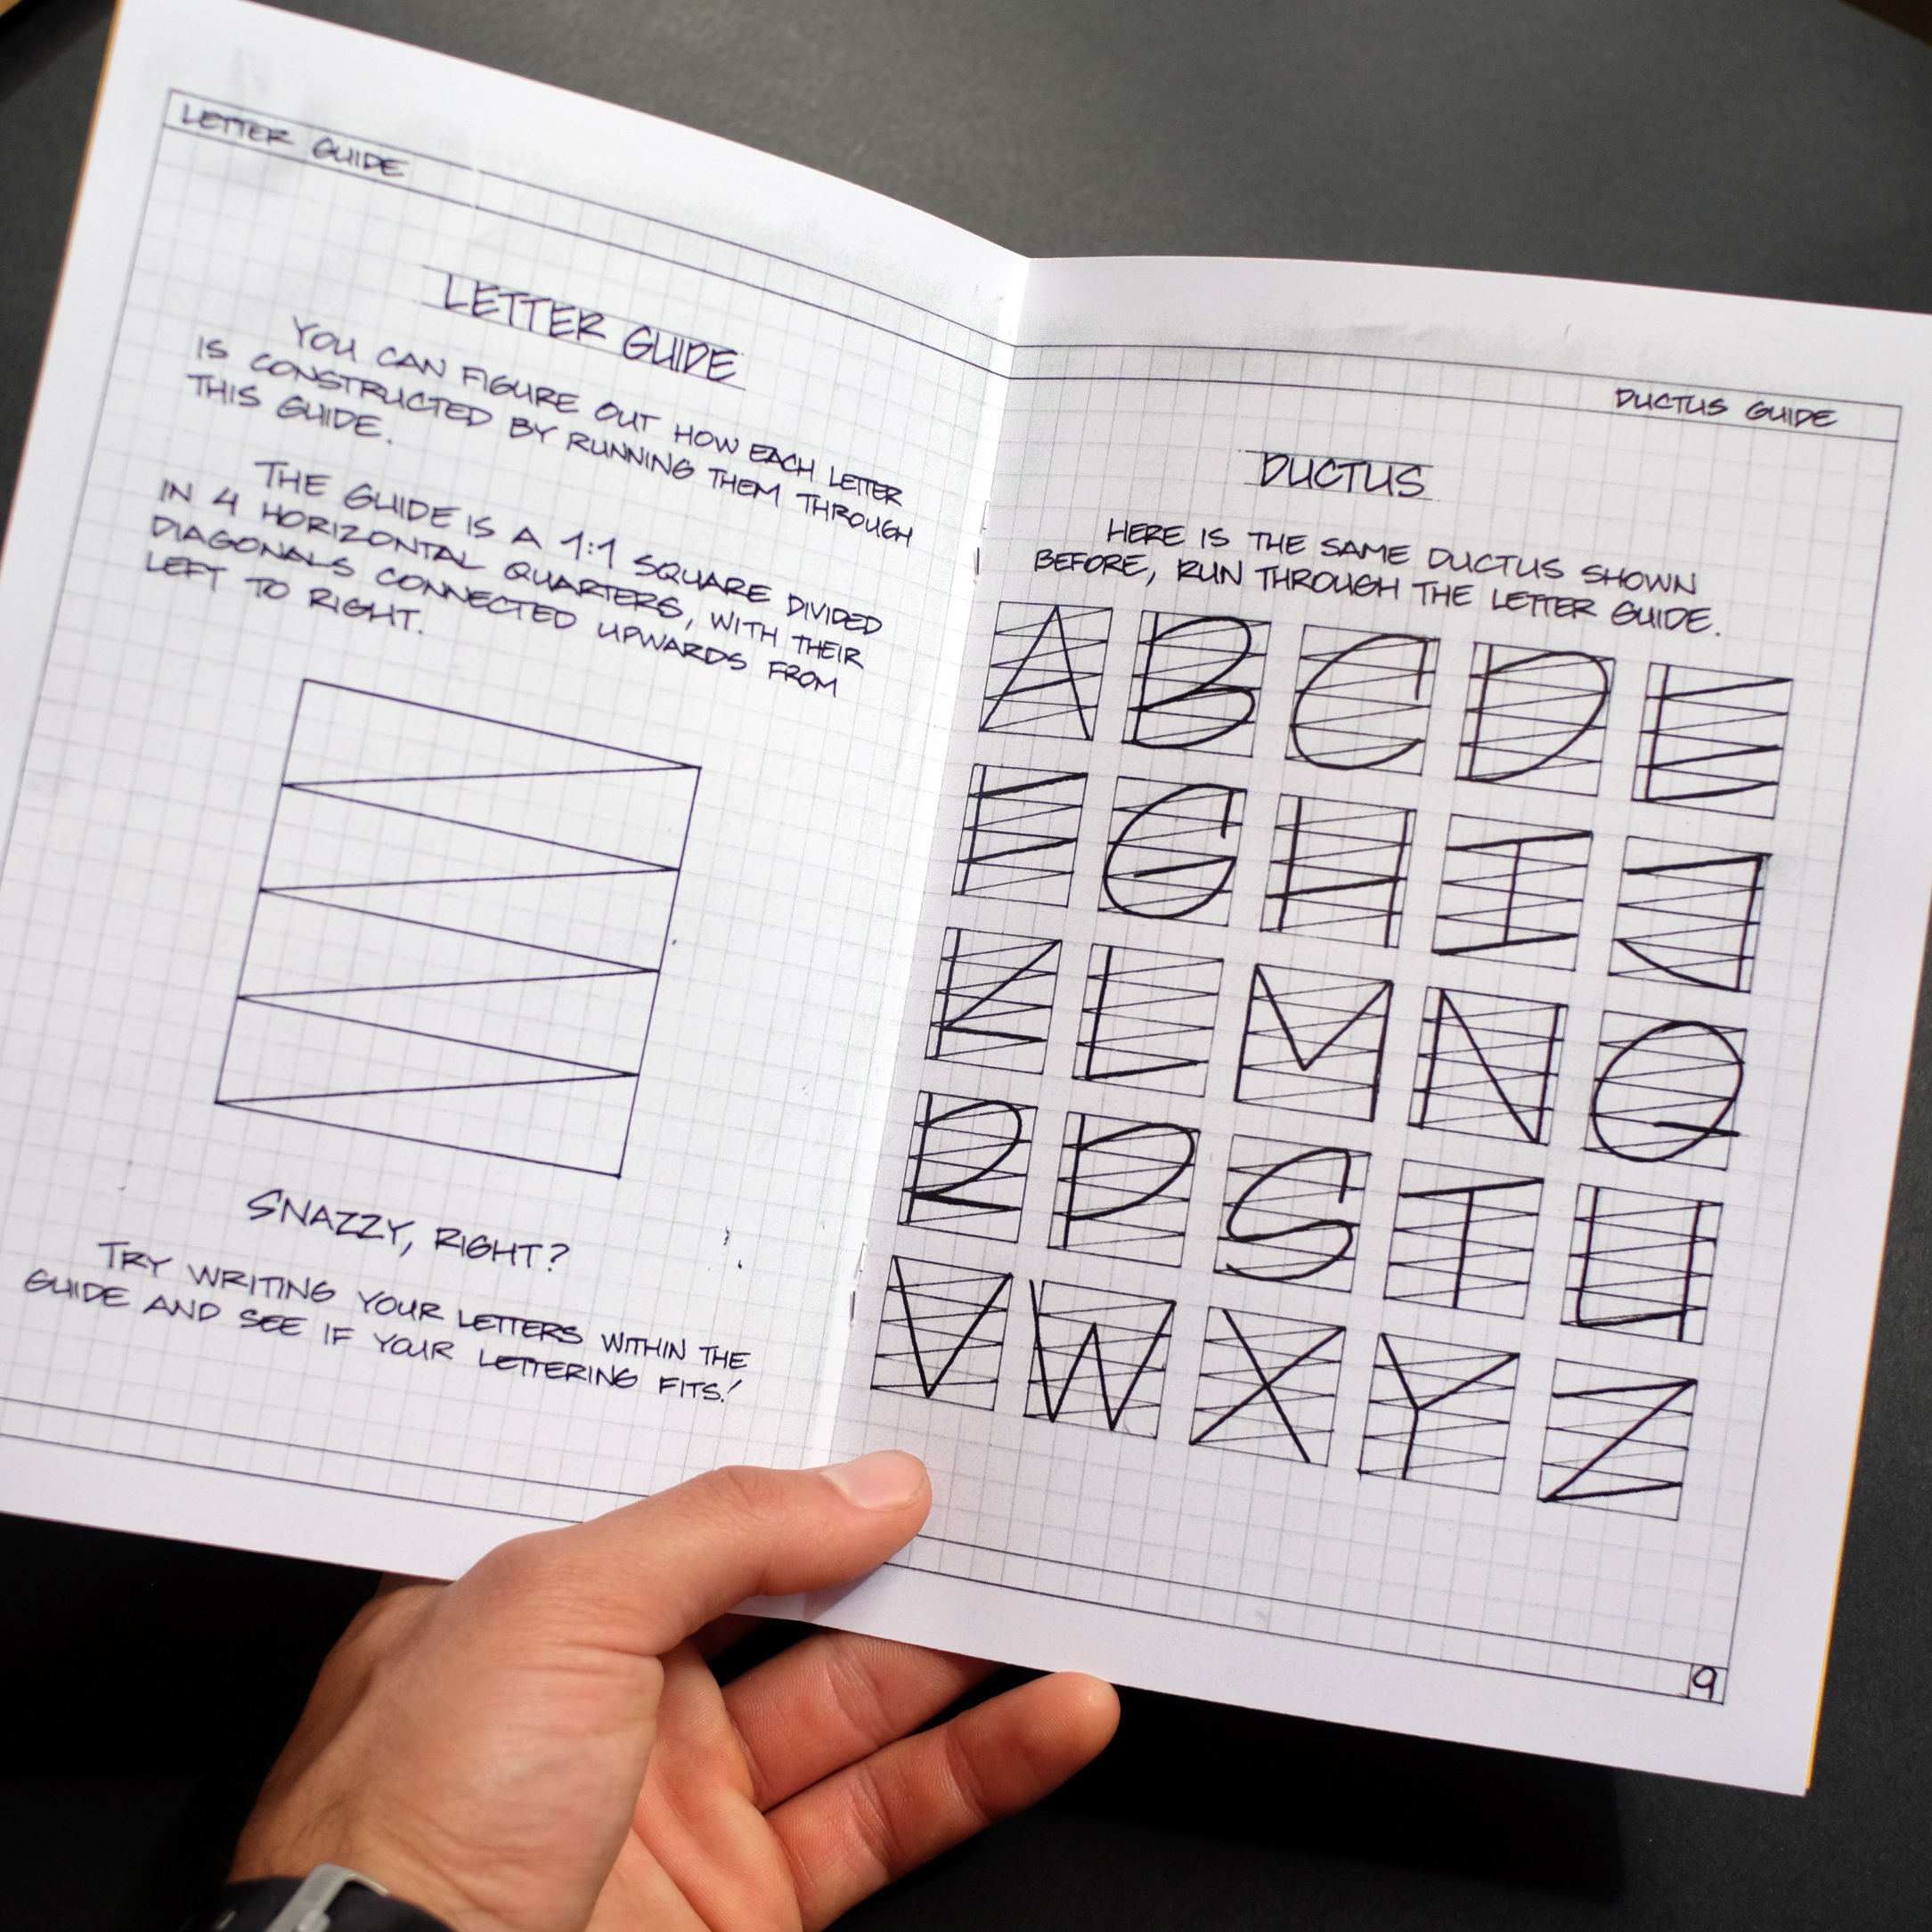 LETTER GUIDE
LETTER GUIDE
YOU CAN FIGURE OUT HOW EACH LETTER
IS CONSTRUCTED BY RUNNING THEM THROUGH
THIS GUIDE.
THE GUIDE IS A 1:1 SQUARE DIVIDED
IN 4 HORIZONTAL QUARTERS, WITH THEIR
DIAGONALS CONNECTED UPWARDS FROM
LEFT TO RIGHT.
SNAZZY, RIGHT?
TRY WRITING YOUR LETTERS WITHIN THE
GUIDE AND SEE IF YOUR LETTERING FITS!
DUCTUS GUIDE
DUCTUS
HERE IS THE SAME DUCTUS SHOWN
BEFORE, RUN THROUGH THE LETTER GUIDE.
A B C D E
F G H I J
K L M N Q
R P S T U
V W X Y Z
9